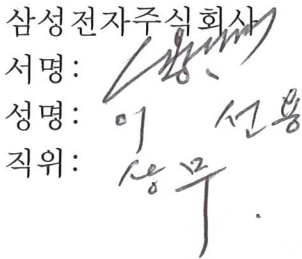 삼성전자주식회사
서명:
성명: 이 선용
직위: 상무